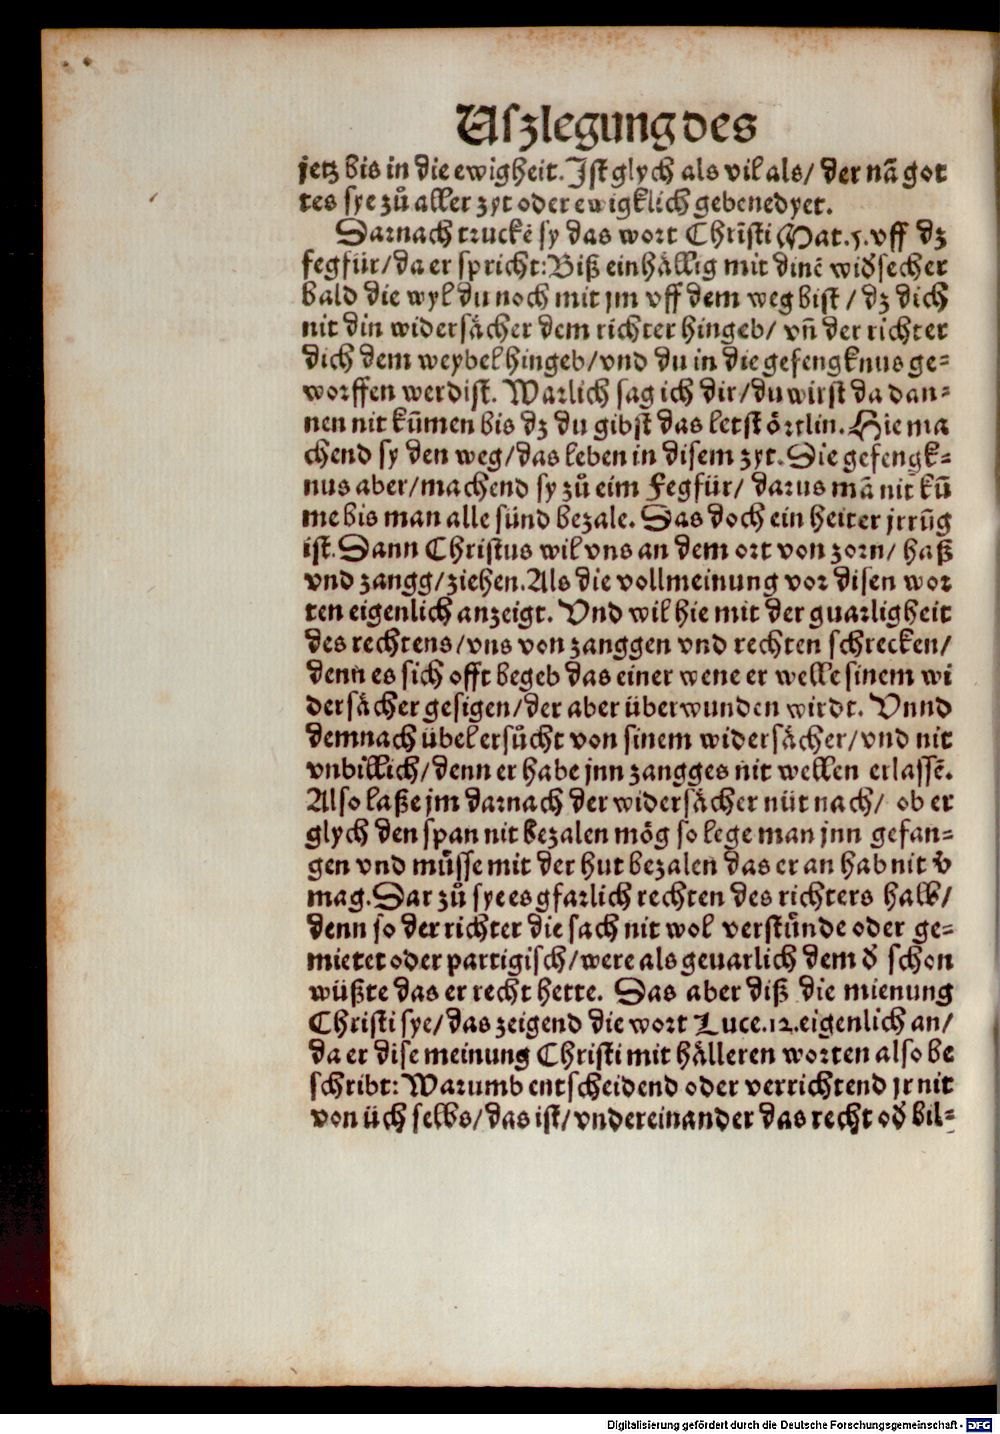 Uſzlegung des
jetz bis in die ewigheit. Iſt glych als vil als/ der nã got
tes ſye zů aller zyt oder ewigklich gebenedyet.
Darnach truckẽ ſy das wort Chriſti Mat.5. vff dz
fegfür/ da er ſpricht: Biß einhällig mit dinẽ wid̾ſecher
bald die wyl du noch mit jm vff dem weg biſt / dz dich
nit din widerſächer dem richter hingeb/ vñ der richter
dich dem weybel hingeb/ vnd du in die gefengknus ge⸗
worffen werdiſt. Warlich ſag ich dir/ du wirſt da dan⸗
nen nit kũmen bis dz du gibſt das letſt örtlin. Hie ma
chend ſy den weg/ das leben in diſem zyt. Die gefengk⸗
nus aber/ machend ſy zů eim Fegfür/ darus mã nit kũ
me bis man alle ſünd bezale. Das doch ein heiter jrrũg
iſt. Dann Chriſtus wil vns an dem ort von zorn/ haß
vnd zangg/ ziehen. Als die vollmeinung vor diſen wor
ten eigenlich anzeigt. Vnd wil hie mit der guarligheit
des rechtens/ vns von zanggen vnd rechten ſchrecken/
denn es ſich offt begeb das einer wene er welle ſinem wi
derſächer geſigen/ der aber überwunden wirdt. Vnnd
demnach übel erſůcht von ſinem widerſächer/ vnd nit
vnbillich/ denn er habe jnn zangges nit wellen erlaſſẽ.
Alſo laße jm darnach der widerſächer nüt nach/ ob er
glych den ſpan nit bezalen mög ſo lege man jnn gefan⸗
gen vnd müſſe mit der hut bezalen das er an hab nit v̾
mag. Dar zů ſye es gfarlich rechten des richters halb/
denn ſo der richter die ſach nit wol verſtünde oder ge⸗
mietet oder partigiſch/ were als geuarlich dem d̾ ſchon
wüßte das er recht hette. Das aber diß die mienung
Chriſti ſye/ das zeigend die wort Luce.12. eigenlich an/
da er diſe meinung Chriſti mit hälleren worten alſo be
ſchribt: Warumb entſcheidend oder verrichtend jr nit
von üch ſelbs/ das iſt/ vndereinander das recht od̾ bil⸗
Digitalisierung gefördert durch die Deutsche Forschungsgemeinschaft - DFG